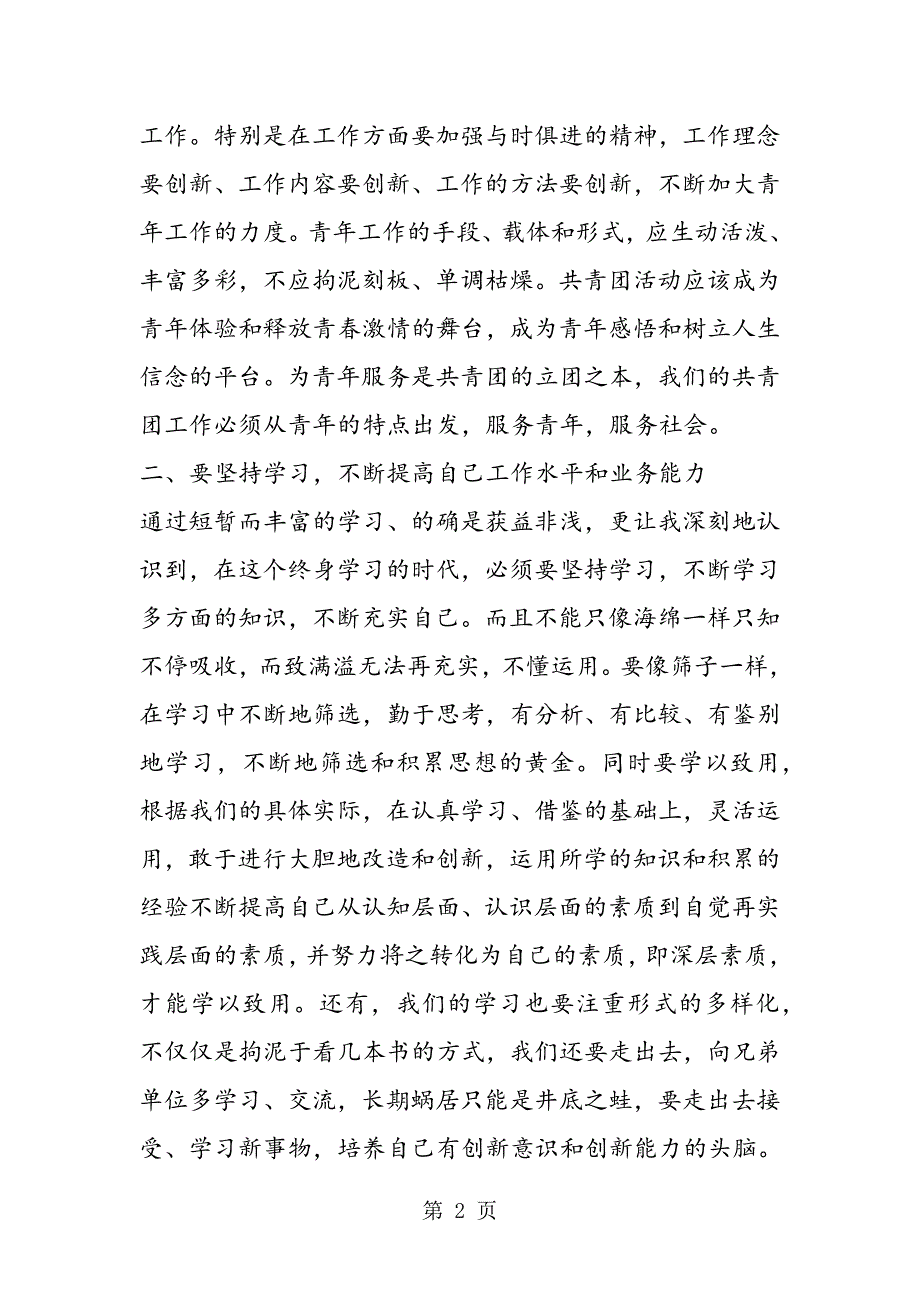 工作。特别是在工作方面要加强与时俱进的精神，工作理念
要创新、工作内容要创新、工作的方法要创新，不断加大青
年工作的力度。青年工作的手段、载体和形式，应生动活泼、
丰富多彩，不应拘泥刻板、单调枯燥。共青团活动应该成为
青年体验和释放青春激情的舞台，成为青年感悟和树立人生
信念的平台。为青年服务是共青团的立团之本，我们的共青
团工作必须从青年的特点出发，服务青年，服务社会。
二、要坚持学习，不断提高自己工作水平和业务能力
通过短暂而丰富的学习、的确是获益非浅，更让我深刻地认
识到，在这个终身学习的时代，必须要坚持学习，不断学习
多方面的知识，不断充实自己。而且不能只像海绵一样只知
不停吸收，而致满溢无法再充实，不懂运用。要像筛子一样，
在学习中不断地筛选，勤于思考，有分析、有比较、有鉴别
地学习，不断地筛选和积累思想的黄金。同时要学以致用，
根据我们的具体实际，在认真学习、借鉴的基础上，灵活运
用，敢于进行大胆地改造和创新，运用所学的知识和积累的
经验不断提高自己从认知层面、认识层面的素质到自觉再实
践层面的素质，并努力将之转化为自己的素质，即深层素质，
才能学以致用。还有，我们的学习也要注重形式的多样化，
不仅仅是拘泥于看几本书的方式，我们还要走出去，向兄弟
单位多学习、交流，长期蜗居只能是井底之蛙，要走出去接
受、学习新事物，培养自己有创新意识和创新能力的头脑。
第 2 页